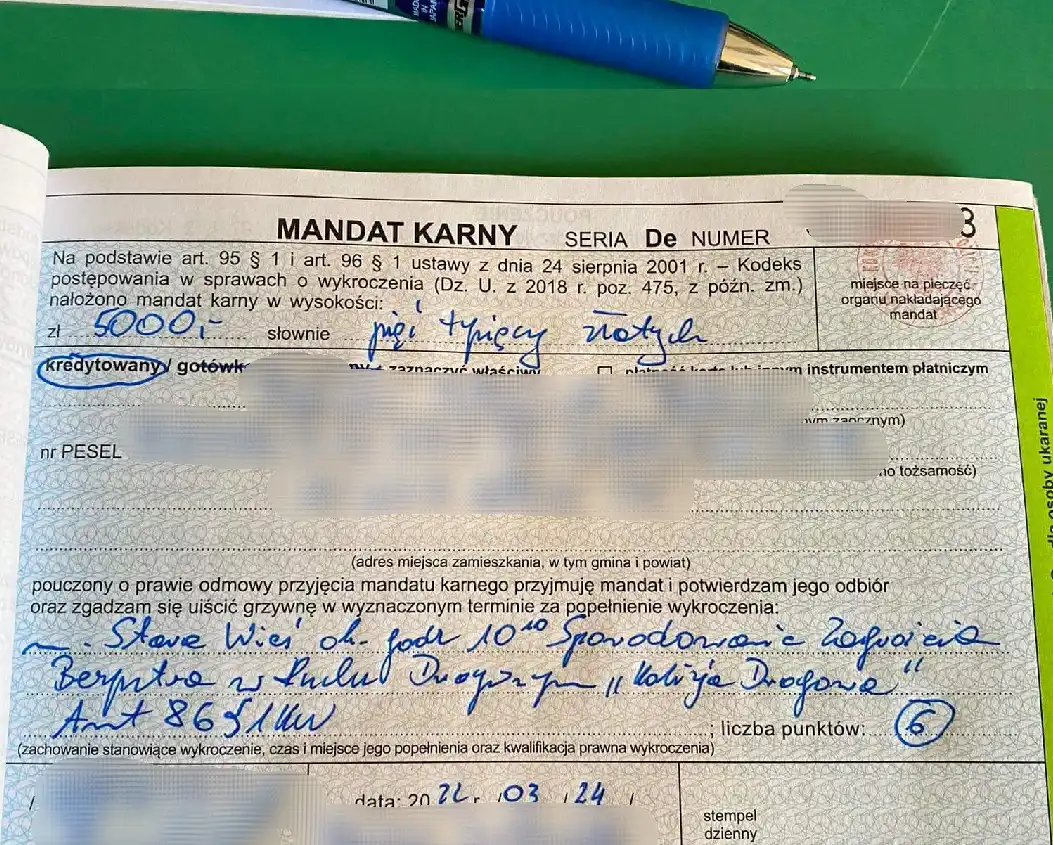 MADE IN JAPAN
MANDAT KARNY SERIA De NUMER 3
Na podstawie art. 95 § 1 i art. 96 § 1 ustawy z dnia 24 sierpnia 2001 r. – Kodeks
postępowania w sprawach o wykroczenia (Dz. U. z 2018 r. poz. 475, z późn. zm.)
nałożono mandat karny w wysokości:
miejsce na pieczęć
organu nakładającego
mandat
zł 5000,- słownie pięć tysięcy złotych
kredytowany / gotówk zaznaczyć instrumentem płatniczym
nr PESEL
no tożsamość)
(adres miejsca zamieszkania, w tym gmina i powiat)
pouczony o prawie odmowy przyjęcia mandatu karnego przyjmuję mandat i potwierdzam jego odbiór
oraz zgadzam się uiścić grzywnę w wyznaczonym terminie za popełnienie wykroczenia:
Stara Wieś ok. godz 10¹⁰ Spowodowanie Zagrożenia
Bezpstwa w Ruchu Drogowym „Kolizja Drogowa”
Art 86 § 1 KW ; liczba punktów: 6
(zachowanie stanowiące wykroczenie, czas i miejsce jego popełnienia oraz kwalifikacja prawna wykroczenia)
data: 20 22 r. 03 24
stempel
dzienny
dla osoby ukaranej